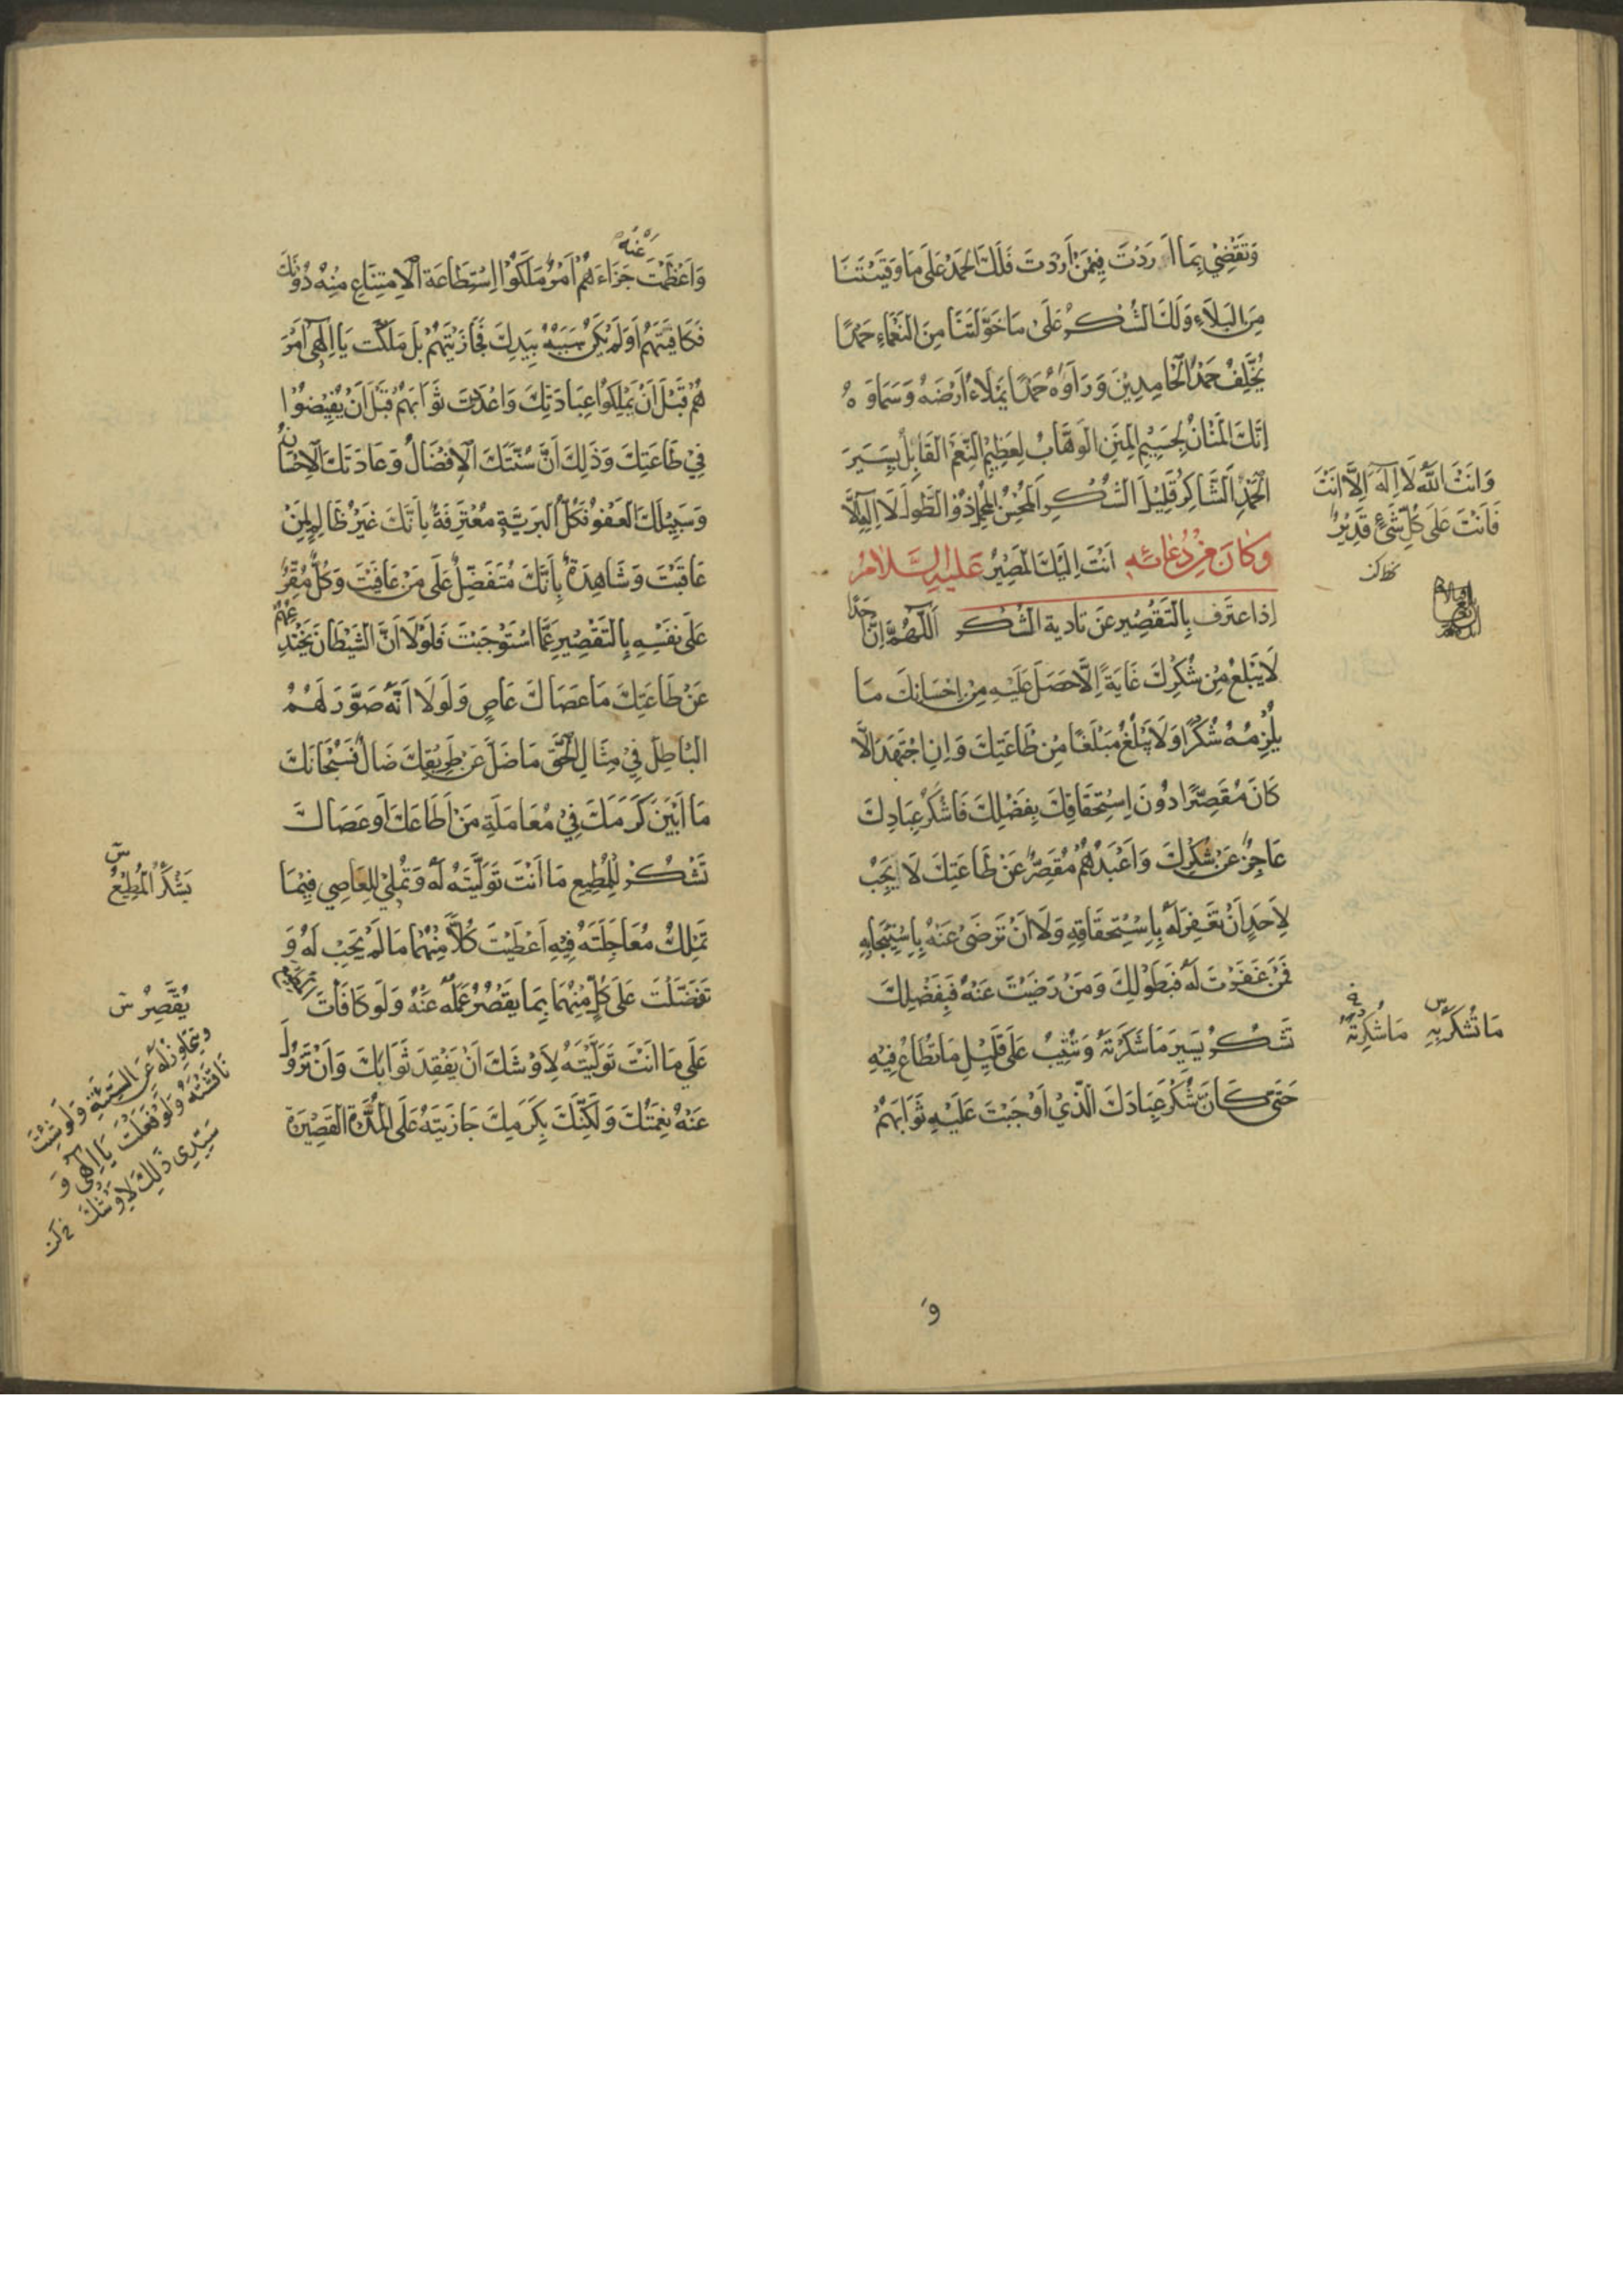 وَتَقْضِي بِمَا اَرَدْتَ فِيمَنْ أَرَدْتَ فَلَكَ الْحَمْدُ عَلَى مَا وَقَيْتَنَا
مِنَ الْبَلَآءِ وَلَكَ الشُّكْرُ عَلَى مَا خَوَّلْتَنَا مِنَ النَّعْمَاءِ حَمْدًا
يُخَلِّفُ حَمْدَ الْحَامِدِيْنَ وَرَاءَهُ حَمْدًا يَمْلَاءُ اَرْضَهُ وَسَمَاوَهُ
اِنَّكَ الْمَنَّانُ بِجَسِيْمِ الْمِنَنِ الْوَهَّابُ لِعَظِيْمِ النِّعَمِ الْقَابِلُ يَسِيْرَ
الْحَمْدِ الشَّاكِرُ قَلِيْلَ الشُّكْرِ الْمُحْسِنُ الْمُجْمِلُ ذُو الطَّوْلِ لَا اِلٰهَ اِلَّا
وَكَانَ مِنْ دُعَائِهِ اَنْتَ اِلَيْكَ الْمَصِيْرُ عَلَيْهِ السَّلَامُ
اِذَا اعتَرَف بِالتَّقْصِيْرِ عَنْ تَادِيَة الشُّكْرِ اَللّٰهُمَّ اِنَّ اَحَدًا
لَا يَبْلُغُ مِنْ شُكْرِكَ غَايَةً اِلَّا حَصَلَ عَلَيْهِ مِنْ اِحْسَانِكَ مَا
يُلْزِمُهُ شُكْرًا وَلَا يَبْلُغُ مَبْلَغًا مِنْ طَاعَتِكَ وَاِنِ اجْتَهَدَ اِلَّا
كَانَ مُقَصِّرًا دُونَ اسْتِحْقَاقِكَ بِفَضْلِكَ فَاَشْكَرُ عِبَادِكَ
عَاجِزٌ عَنْ شُكْرِكَ وَاَعْبَدُهُمْ مُقَصِّرٌ عَنْ طَاعَتِكَ لَا يَجِبُ
لِاَحَدٍ اَنْ تَغْفِرَ لَهُ بِاسْتِحْقَاقِهِ وَلَا اَنْ تَرْضَى عَنْهُ بِاسْتِيْجَابِهِ
فَمَنْ غَفَرْتَ لَهُ فَبِطَوْلِكَ وَمَنْ رَضِيْتَ عَنْهُ فَبِفَضْلِكَ
تَشْكُرُ يَسِيْرَ مَا شَكَرْتَهُ وَتُثِيْبُ عَلَى قَلِيْلِ مَا تُطَاعُ فِيْهِ
حَتَّى كَانَ شُكْرُ عِبَادِكَ الَّذِيْ اَوْجَبْتَ عَلَيْهِ ثَوَابَهُمْ
وَ
وَاَنْتَ اللّٰهُ لَا اِلٰهَ اِلَّا اَنْتَ
فَاَنْتَ عَلَى كُلِّ شَيْءٍ قَدِيْرٌ
مَا تُشْكَرُ بِهِ س
مَا شُكِرْتَهُ
وَاَعْظَمْتَ عَنْهُ جَزَاءَهُمْ اَمْرٌ مَلَكُوا اسْتِطَاعَةَ الْاِمْتِنَاعِ مِنْهُ دُوْنَكَ
فَكَافَيْتَهُمْ اَوَ لَمْ يَكُنْ سَبَبُهُ بِيَدِكَ فَجَازَيْتَهُمْ بَلْ مَلَكْتَ يَا اِلٰهِي اَمْرَ
هُمْ قَبْلَ اَنْ يَمْلِكُوا عِبَادَتَكَ وَاَعْدَدْتَ ثَوَابَهُمْ قَبْلَ اَنْ يُفِيْضُوْا
فِيْ طَاعَتِكَ وَذٰلِكَ اَنَّ سُنَّتَكَ الْاِفْضَالُ وَعَادَتَكَ الْاِحْسَانُ
وَسَبِيْلَكَ الْعَفْوُ فَكُلُّ الْبَرِيَّةِ مُعْتَرِفَةٌ بِاَنَّكَ غَيْرُ ظَالِمٍ لِمَنْ
عَاقَبْتَ وَشَاهِدَةٌ بِاَنَّكَ مُتَفَضِّلٌ عَلَى مَنْ عَافَيْتَ وَكُلٌّ مُقِرٌّ
عَلَى نَفْسِهِ بِالتَّقْصِيْرِ عَمَّا اسْتَوْجَبْتَ فَلَوْلَا اَنَّ الشَّيْطَانَ يَخْتَدِعُهُمْ
عَنْ طَاعَتِكَ مَا عَصَاكَ عَاصٍ وَلَوْلَا اَنَّهُ صَوَّرَ لَهُمُ
الْبَاطِلَ فِيْ مِثَالِ الْحَقِّ مَا ضَلَّ عَنْ طَرِيْقِكَ ضَالٌّ فَسُبْحَانَكَ
مَا اَبْيَنَ كَرَمَكَ فِيْ مُعَامَلَةِ مَنْ اَطَاعَكَ اَوْ عَصَاكَ
تَشْكُرُ لِلْمُطِيْعِ مَا اَنْتَ تَوَلَّيْتَهُ لَهُ وَتُمْلِيْ لِلْعَاصِي فِيْمَا
تَمْلِكُ مُعَاجَلَتَهُ فِيْهِ اَعْطَيْتَ كُلًّا مِنْهُمَا مَا لَمْ يَجِبْ لَهُ وَ
تَفَضَّلْتَ عَلَى كُلٍّ مِنْهُمَا بِمَا يَقْصُرُ عَمَلُهُ عَنْهُ وَلَوْ كَافَاْتَ
عَلَى مَا اَنْتَ تَوَلَّيْتَهُ لَاَوْشَكَ اَنْ يَفْقِدَ ثَوَابَكَ وَاَنْ تَزُوْلَ
عَنْهُ نِعْمَتُكَ وَلٰكِنَّكَ بِكَرَمِكَ جَازَيْتَهُ عَلَى الْمُدَّةِ الْقَصِيْرَةِ
يَشْكُرُ الْمُطِيْعُ
يُقَصِّرُ
وَيَتَجَاوَزُ لَهُ عَنِ السَّيِّئَةِ وَلَوْ شِئْتَ
نَاقَشْتَهُ وَلَوْ فَعَلْتَ يَا اِلٰهِي وَ
سَيِّدِي ذٰلِكَ لَاَوْشَكَ